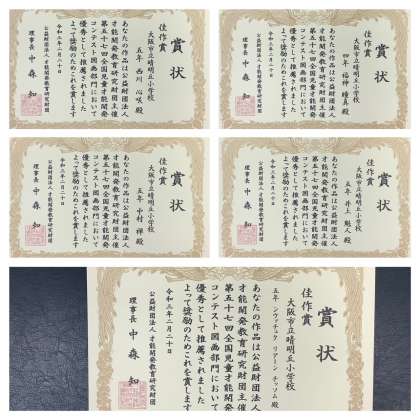 賞状
佳作賞
大阪市立晴明丘小学校
五年 西川 心咲 殿
あなたの作品は公益財団法人
才能開発教育研究財団主催
第五十七回全国児童才能開発
コンテスト図画部門において
優秀として推薦されました
よって奨励のためこれを賞します
令和三年二月二十日
公益財団法人 才能開発教育研究財団
理事長 中森 知
賞状
佳作賞
大阪市立晴明丘小学校
四年 福神 瞳真 殿
あなたの作品は公益財団法人
才能開発教育研究財団主催
第五十七回全国児童才能開発
コンテスト図画部門において
優秀として推薦されました
よって奨励のためこれを賞します
令和三年二月二十日
公益財団法人 才能開発教育研究財団
理事長 中森 知
賞状
佳作賞
大阪市立晴明丘小学校
五年 中村 殿
あなたの作品は公益財団法人
才能開発教育研究財団主催
第五十七回全国児童才能開発
コンテスト図画部門において
優秀として推薦されました
よって奨励のためこれを賞します
令和三年二月二十日
公益財団法人 才能開発教育研究財団
理事長 中森 知
賞状
佳作賞
大阪市立晴明丘小学校
五年 井上 魁人 殿
あなたの作品は公益財団法人
才能開発教育研究財団主催
第五十七回全国児童才能開発
コンテスト図画部門において
優秀として推薦されました
よって奨励のためこれを賞します
令和三年二月二十日
公益財団法人 才能開発教育研究財団
理事長 中森 知
賞状
佳作賞
大阪市立晴明丘小学校
五年 リアーン 殿
あなたの作品は公益財団法人
才能開発教育研究財団主催
第五十七回全国児童才能開発
コンテスト図画部門において
優秀として推薦されました
よって奨励のためこれを賞します
令和三年二月二十日
公益財団法人 才能開発教育研究財団
理事長 中森 知